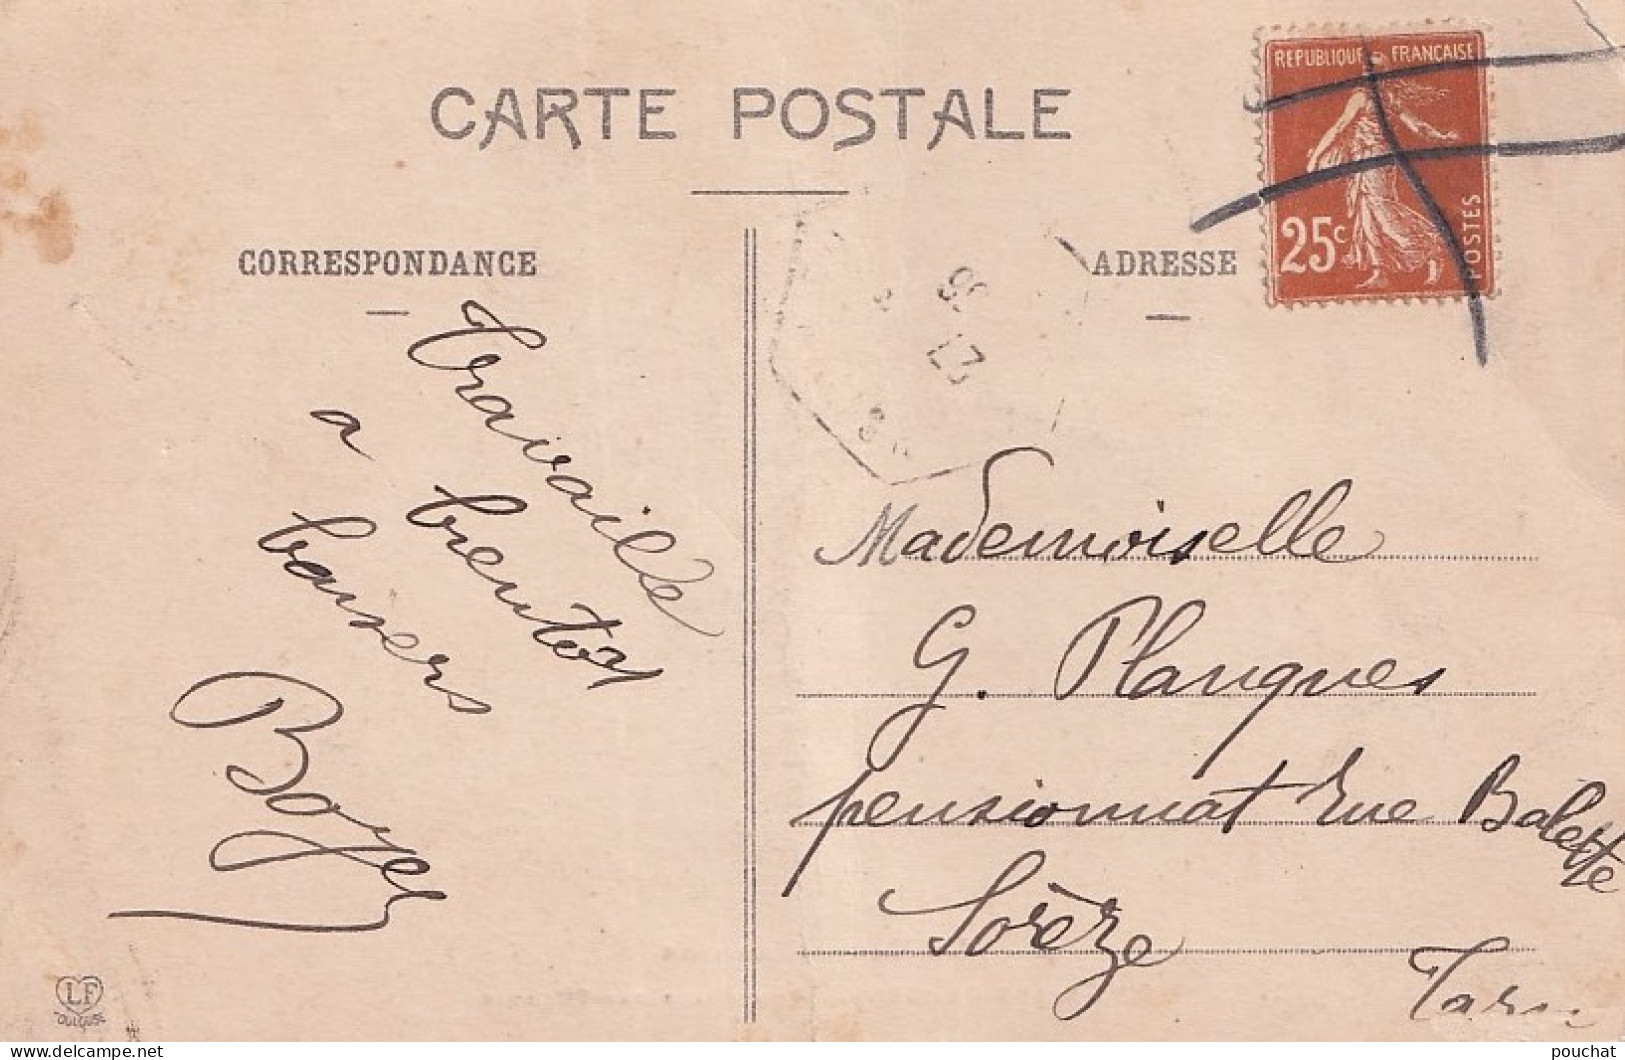 CARTE POSTALE
REPUBLIQUE FRANÇAISE
25c
POSTES
CORRESPONDANCE
ADRESSE
travaille
a bientôt
baisers
Boyer
Mademoiselle
G. Planques
pensionnat rue Balette
Sorèze
Tarn
LF
TOULOUSE
pouchat